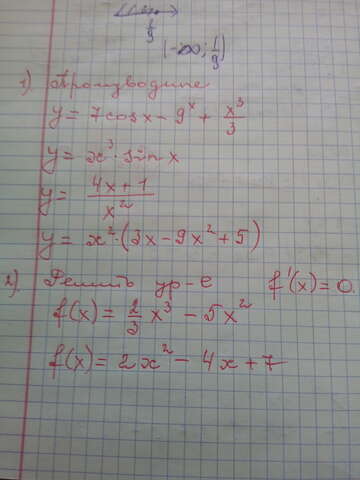 1/9
(-∞; 1/9)
1). Производные
y = 7cosx - 9^x + x³/3
y = x³ · sin x
y = (4x + 1)/x²
y = x² · (3x - 9x² + 5)
2). Решить ур-е f'(x) = 0.
f(x) = 2/3 x³ - 5x²
f(x) = 2x² - 4x + 7